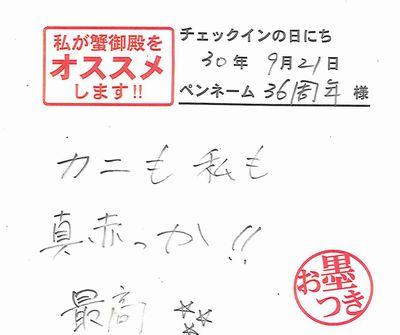 私が蟹御殿を
オススメ
します!!
チェックインの日にち
30年 9月21日
ペンネーム 36周年 様
カニも私も
真赤っか!!
最高
お墨つき